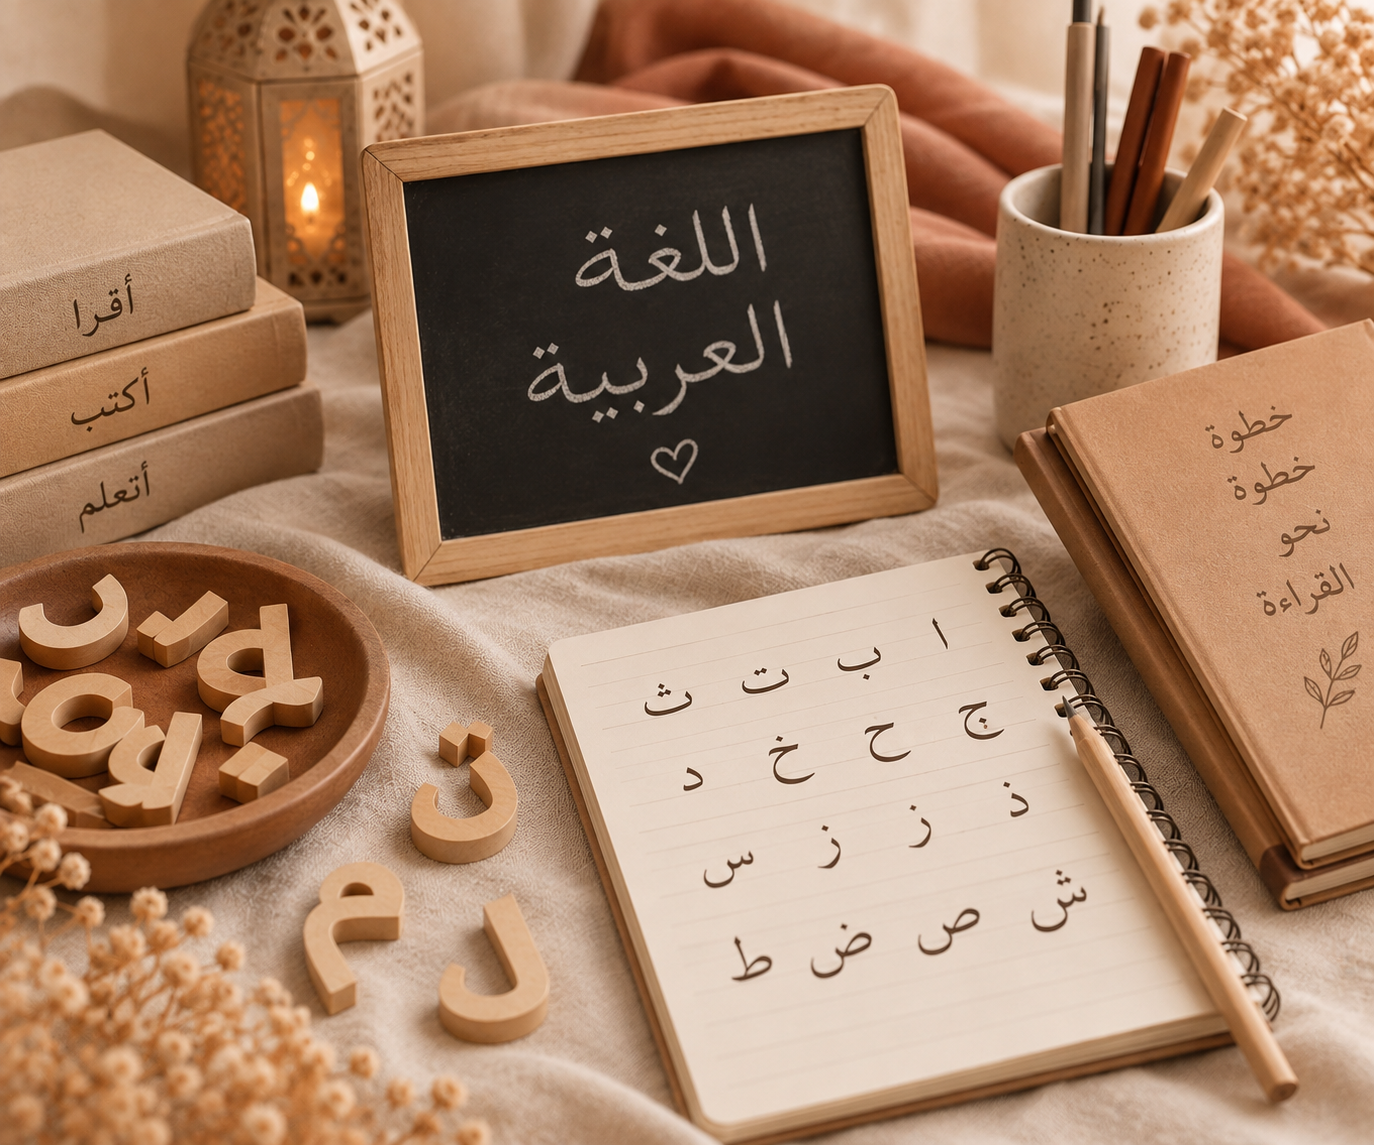 اللغة
العربية
أقرا
أكتب
أتعلم
خطوة
خطوة
نحو
القراءة
ا ب ت ث
ج ح خ د
ذ ز ز س
ش ص ض ط
ت
م
ل